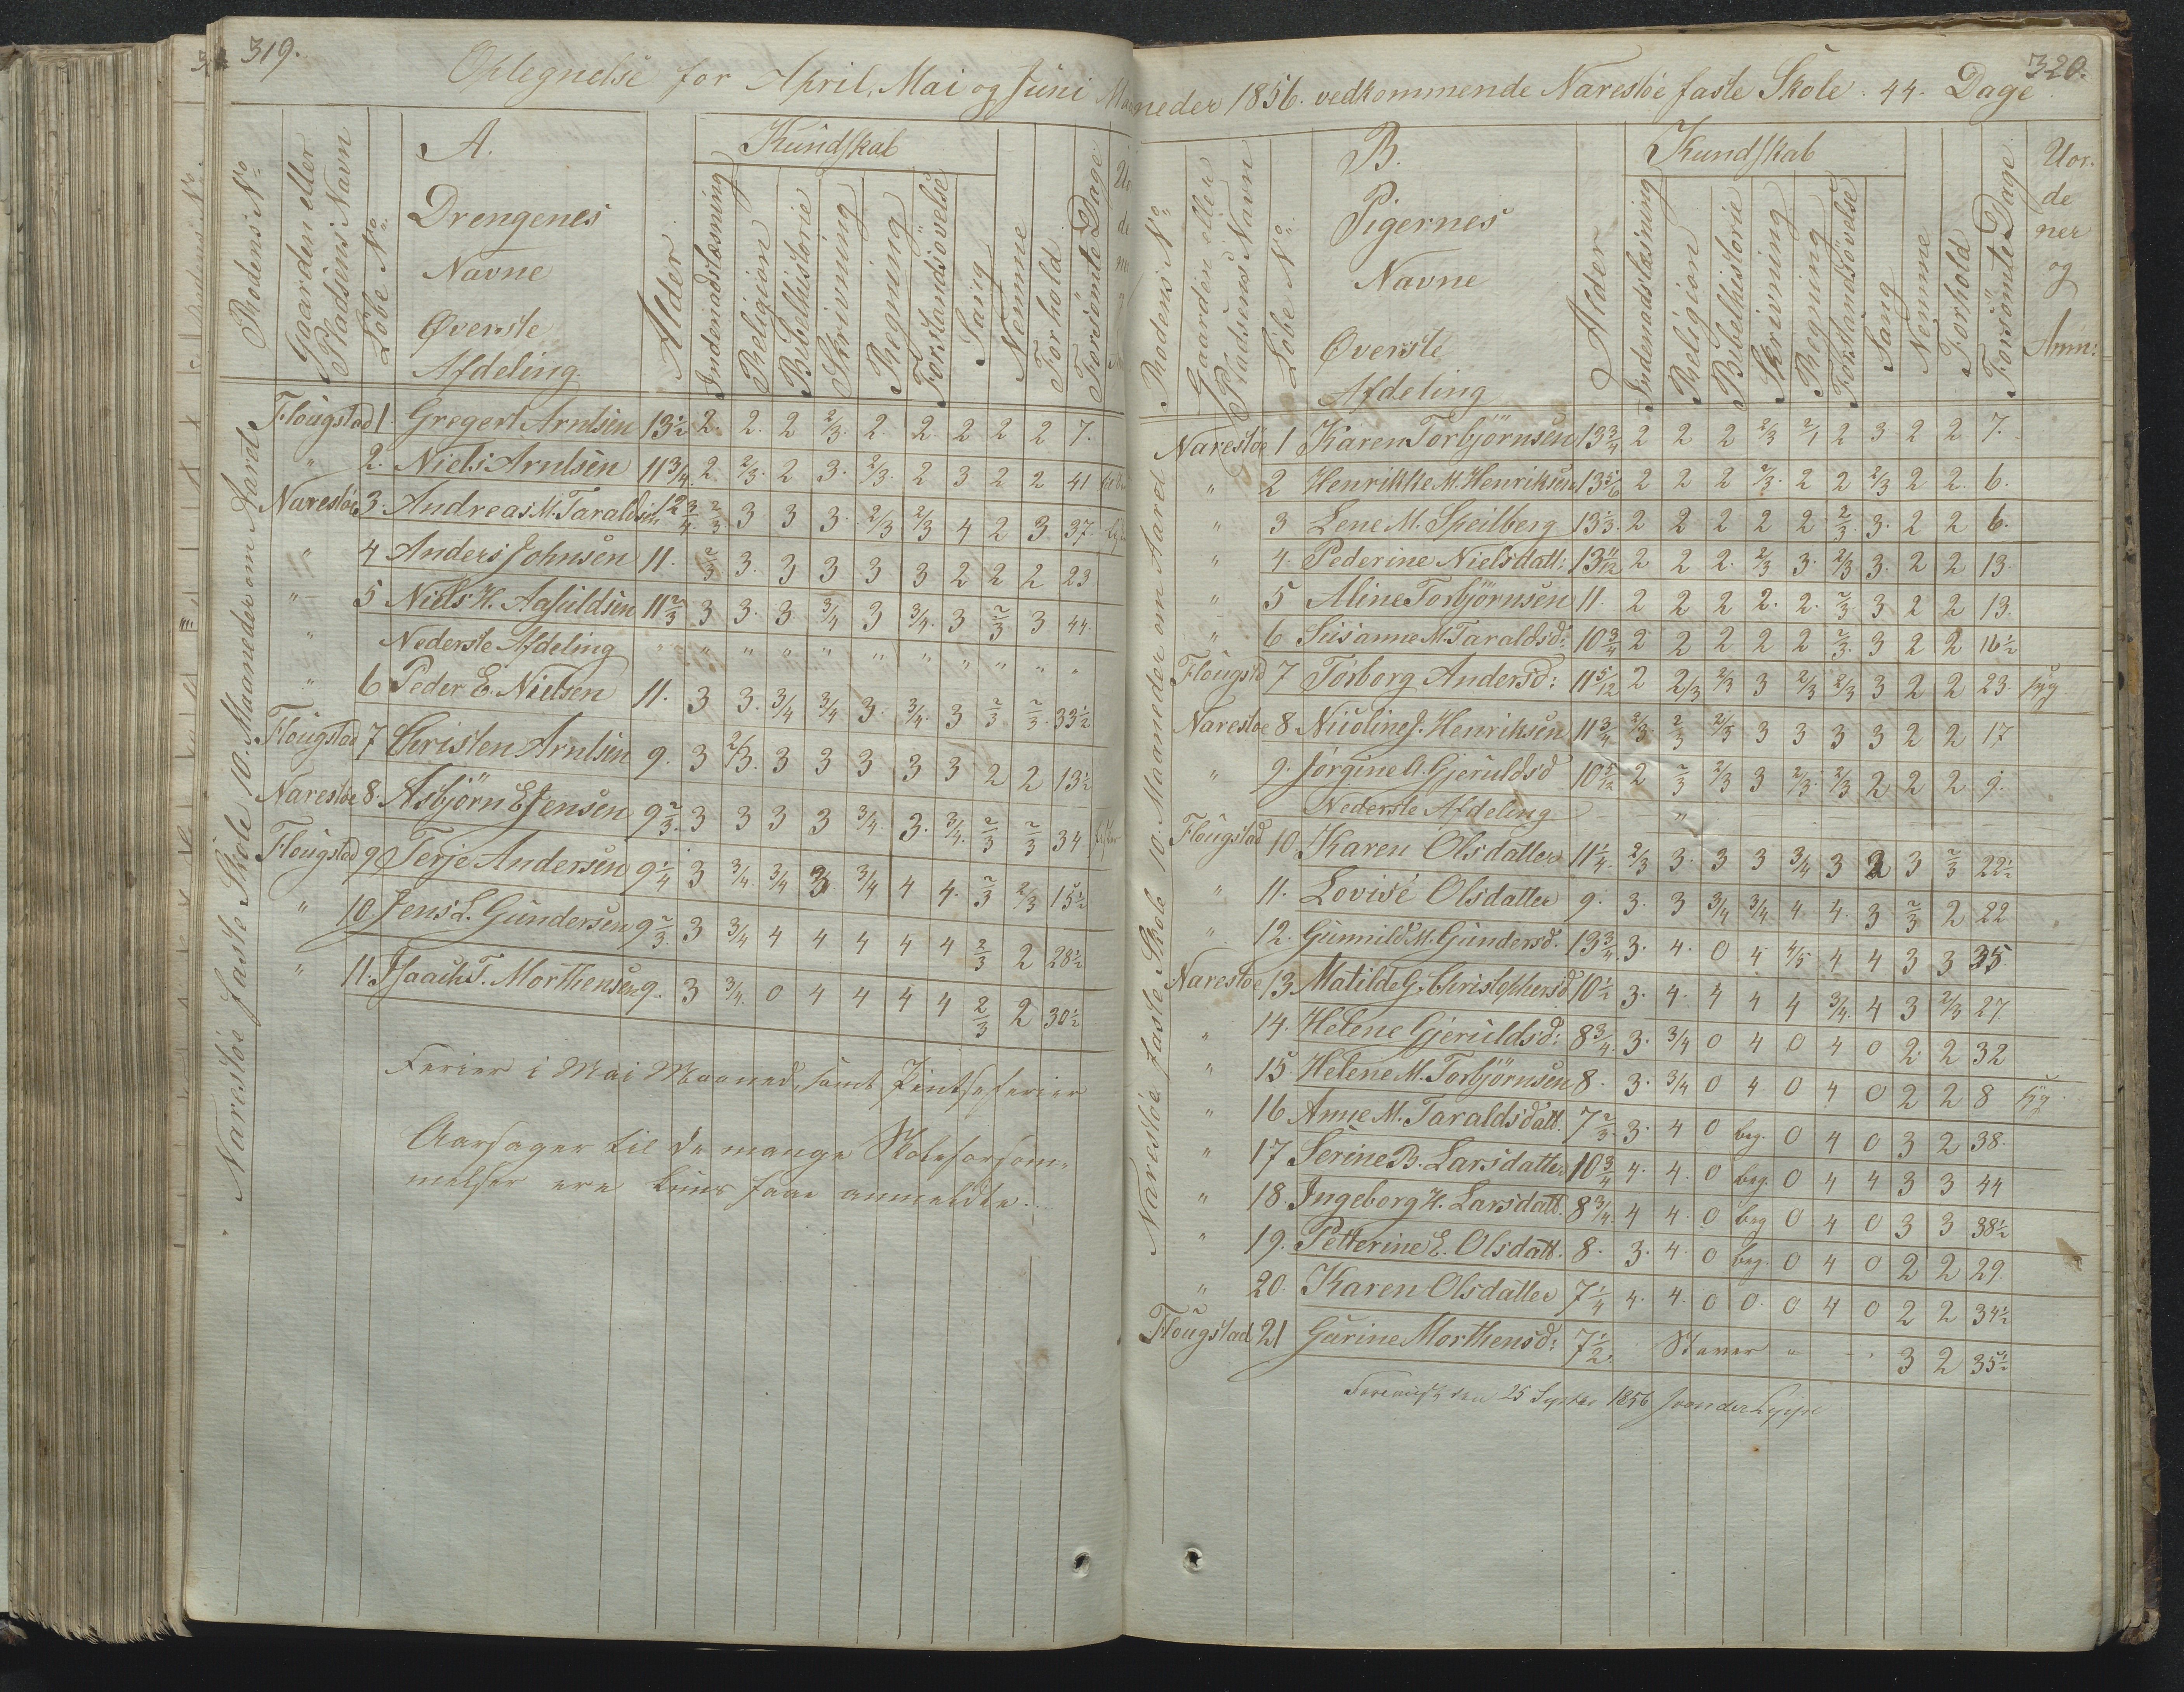 319.
Optegnelse for April, Mai og Juni Maa
A.
Kundskab
Rodens No
Gaarden eller Pladsens Navn
Løbe No
Drengenes
Navne
Øverste
Afdeling.
Alder
Indenadslæsning
Religion
Bibelhistorie
Skrivning
Regning
Forstandsøvelse
Sang
Nemme
Forhold
Forsömte Dage
Narestöe faste Skole 10. Maaneder om Aaret
Flougstad 1 Gregert Arntsen 13½ 2. 2. 2 2/3. 2. 2. 2 2 2 7.
" 2. Niels Arntsen 11 3/4 2 2/3. 2 3. 2/3. 2 3 2 2 41
Narestöe 3. Andreas M. Taraldsen 12 3/4 2/3 3 3 3. 2/3 2/3 4 2 3. 37.
" 4 Anders Johnsen 11. 2/3 3. 3 3 3 3 2 2 2 23
" 5 Niels H. Agsuldsen 11 2/3 3 3. 3 3/4 3 3/4. 3 2/3 3 44.
Nederste Afdeling " " " " " " " " " "
" 6 Peder E. Nielsen 11. 3 3. 3/4 3/4 3. 3/4. 3 2/3 2/3. 33½
Flougstad 7 Christen Arntsen 9. 3 2/3. 3 3 3 3 3 2 2 13½
Narestöe 8. Asbjörn E Jensen 9 2/3. 3 3 3 3 3/4. 3. 3/4. 2/3 2/3 34
Flougstad 9 Terje Andersen 9 1/4 3 3/4. 3/4 3 3/4 4 4. 2/3 2/3 15½
" 10 Jens L. Gundersen 9 2/3. 3 3/4 4 4 4 4 4 2/3 2 28½
" 11. Isaach T. Morthensen 9. 3 3/4. 0 4 4 4 4 2/3 2 30½
Ferier i Mai Maaned, samt Pintseferier
Aarsager til de mange Skoleforsøm-
melser ere kuns faae anmeldte.
320.
neder 1856. vedkommende Narestöe faste Skole. 44. Dage
B.
Kundskab
Rodens No
Gaarden eller Pladsens Navn
Løbe No
Pigernes
Navne
Øverste
Afdeling
Alder
Indenadslæsning
Religion
Bibelhistorie
Skrivning
Regning
Forstandsövelse
Sang
Nemme
Forhold
Forsömte Dage
Uor-
de
ner
og
Anm:
Narestöe faste Skole 10. Maaneder om Aaret
Narestöe 1 Karen Torbjörnsen 13 3/4 2 2 2 2/3 2/1 2 3 2 2 7.
" 2 Henrikke M. Henriksen 13 5/6 2 2 2 2/3. 2 2 2/3 2 2. 6.
" 3 Lene M. Speilberg 13 1/3. 2 2 2 2 2 2/3. 3. 2 2 6.
" 4. Pederine Nielsdatt: 13 11/12 2 2 2. 2/3 3. 2/3 3. 2 2 13.
" 5 Aline Torbjörnsen 11. 2 2 2 2. 2. 2/3. 3 2 2 13.
" 6 Susanne M. Taraldsd: 10 3/4 2 2 2 2 2 2/3. 3 2 2 16½
Flougstd 7 Torborg Andersd: 11 5/12 2 2/3 2/3 3 2/3 2/3 3 2 2 23. syg
Narestöe 8. Nicoline J. Henriksen 11 3/4 2/3. 2/3 2/3 3 3 3 3 2 2 17
" 9. Jörgine A. Gjeruldsd 10 5/12 2 2/3 2/3 3 2/3. 2/3 2 2 2 9.
Nederste Afdeling "
Flougstad 10. Karen Olsdatter 11 1/4. 2/3 3. 3 3 3/4 3 2 3 2/3 22½
" 11. Lovise Olsdatter 9. 3. 3 3/4 3/4 4 4. 3 2/3 2 22
" 12. Gunnild M. Gundersd. 13 3/4 3. 4. 0 4 4/5 4 4 3 3 35.
Narestöe 13 Matilde G. Christophersd. 10½ 3. 4. 4 4 4 3/4. 4 3 2/3 27
" 14. Helene Gjeruldsd: 8 3/4. 3. 3/4 0 4 0 4 0 2 2 32
" 15. Helene M. Torbjörnsen 8. 3. 3/4 0 4 0 4 0 2 2 8 syg
" 16 Anne M. Taraldsdatt. 7 2/3. 3. 4 0 beg. 0 4 0 3 2 38.
" 17 Serine B. Larsdatter 10 3/4 4. 4. 0 beg. 0 4 4 3 3 44
" 18. Ingeborg H. Larsdatt. 8 3/4. 4 4. 0 beg 0 4 0 3 3 38½
" 19. Petterine E. Olsdatt. 8. 3. 4. 0 beg. 0 4 0 2 2 29.
" 20. Karen Olsdatter 7 1/4 4. 4. 0 0. 0 4 0 2 2 34½
Flougstad 21 Gurine Morthensd: 7½. Staver " 3 2 35½
den 25 Septbr 1856